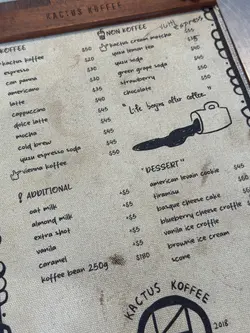 KACTUS KOFFEE
KOFFEE
kactus koffee $50
espresso $30
con panna
americano $35
latte $40
cappuccino $40
dolce latte $45
mocha $45
cold brew
yuzu espresso soda $50
vienna koffee
ADDITIONAL
oat milk +$5
almond milk +$5
extra shot +$5
vanila +$5
caramel +$5
koffee bean 250g $180
NON KOFFEE
kactus cream matcha
yuzu lemon tea
yuzu soda
green grape soda
strawberry $50
chocolate
"Life begins after coffee"
"DESSERT"
american levain cookie $45
tiramisu
basque cheese cake
blueberry cheese croffle
vanila ice croffle
brownie ice cream
scone
KACTUS KOFFEE
2018